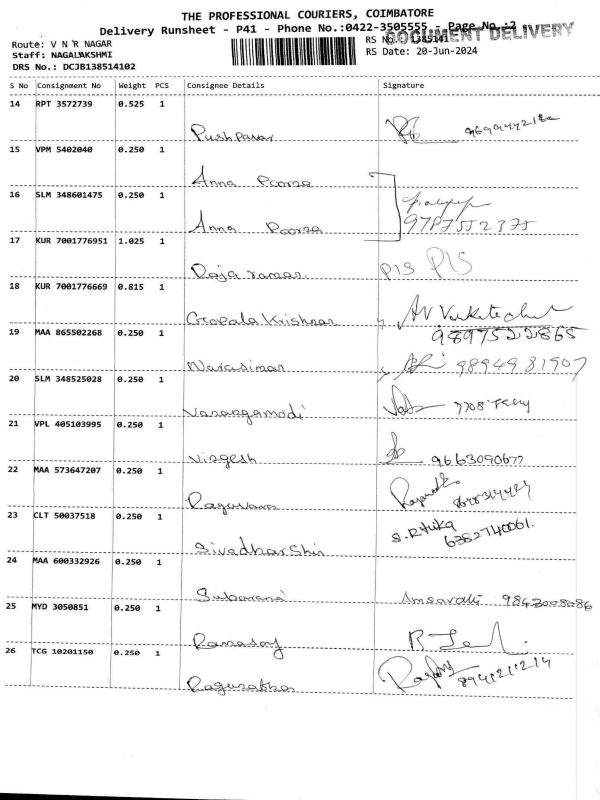 THE PROFESSIONAL COURIERS, COIMBATORE
Delivery Runsheet - P41 - Phone No.:0422-3505555 - Page No.:2
DOCUMENT DELIVERY
Route: V N R NAGAR
RS No.: 1385141
Staff: NAGALAKSHMI
RS Date: 20-Jun-2024
DRS No.: DCJB138514102
S No Consignment No Weight PCS Consignee Details Signature
14 RPT 3572739 0.525 1
Pushpavar
15 VPM 5402040 0.250 1
Anna Poorna
16 SLM 348601475 0.250 1
Anna Poorna 9787552375
17 KUR 7001776951 1.025 1
Raja raman P1S P1S
18 KUR 7001776669 0.815 1
Gopala Krishnan
9897522865
19 MAA 865502268 0.250 1
Narasiman 9894981907
20 SLM 348525028 0.250 1
Varangamodi
21 VPL 405103995 0.250 1
Virgesh 9663090677
22 MAA 573647207 0.250 1
Raguram
23 CLT 50037518 0.250 1
S. Rituka
6382740061.
Sivadharshin
24 MAA 600332926 0.250 1
Subarani Amsavalli 9843008086
25 MYD 3050851 0.250 1
Ramasamy
26 TCG 10201150 0.250 1